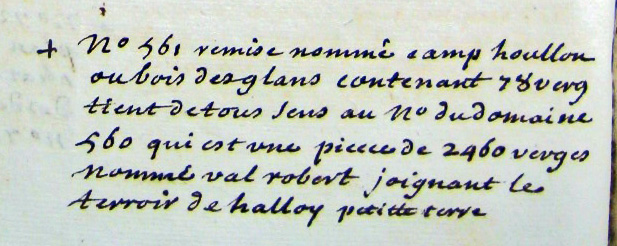 + No 561 remise nommé camp houllou
ou bois des glans contenant 78 verg
tient de tous sens au No du domaine
560 qui est une piece de 2460 verges
nommé val robert joignant le
terroir de halloy petitte terre